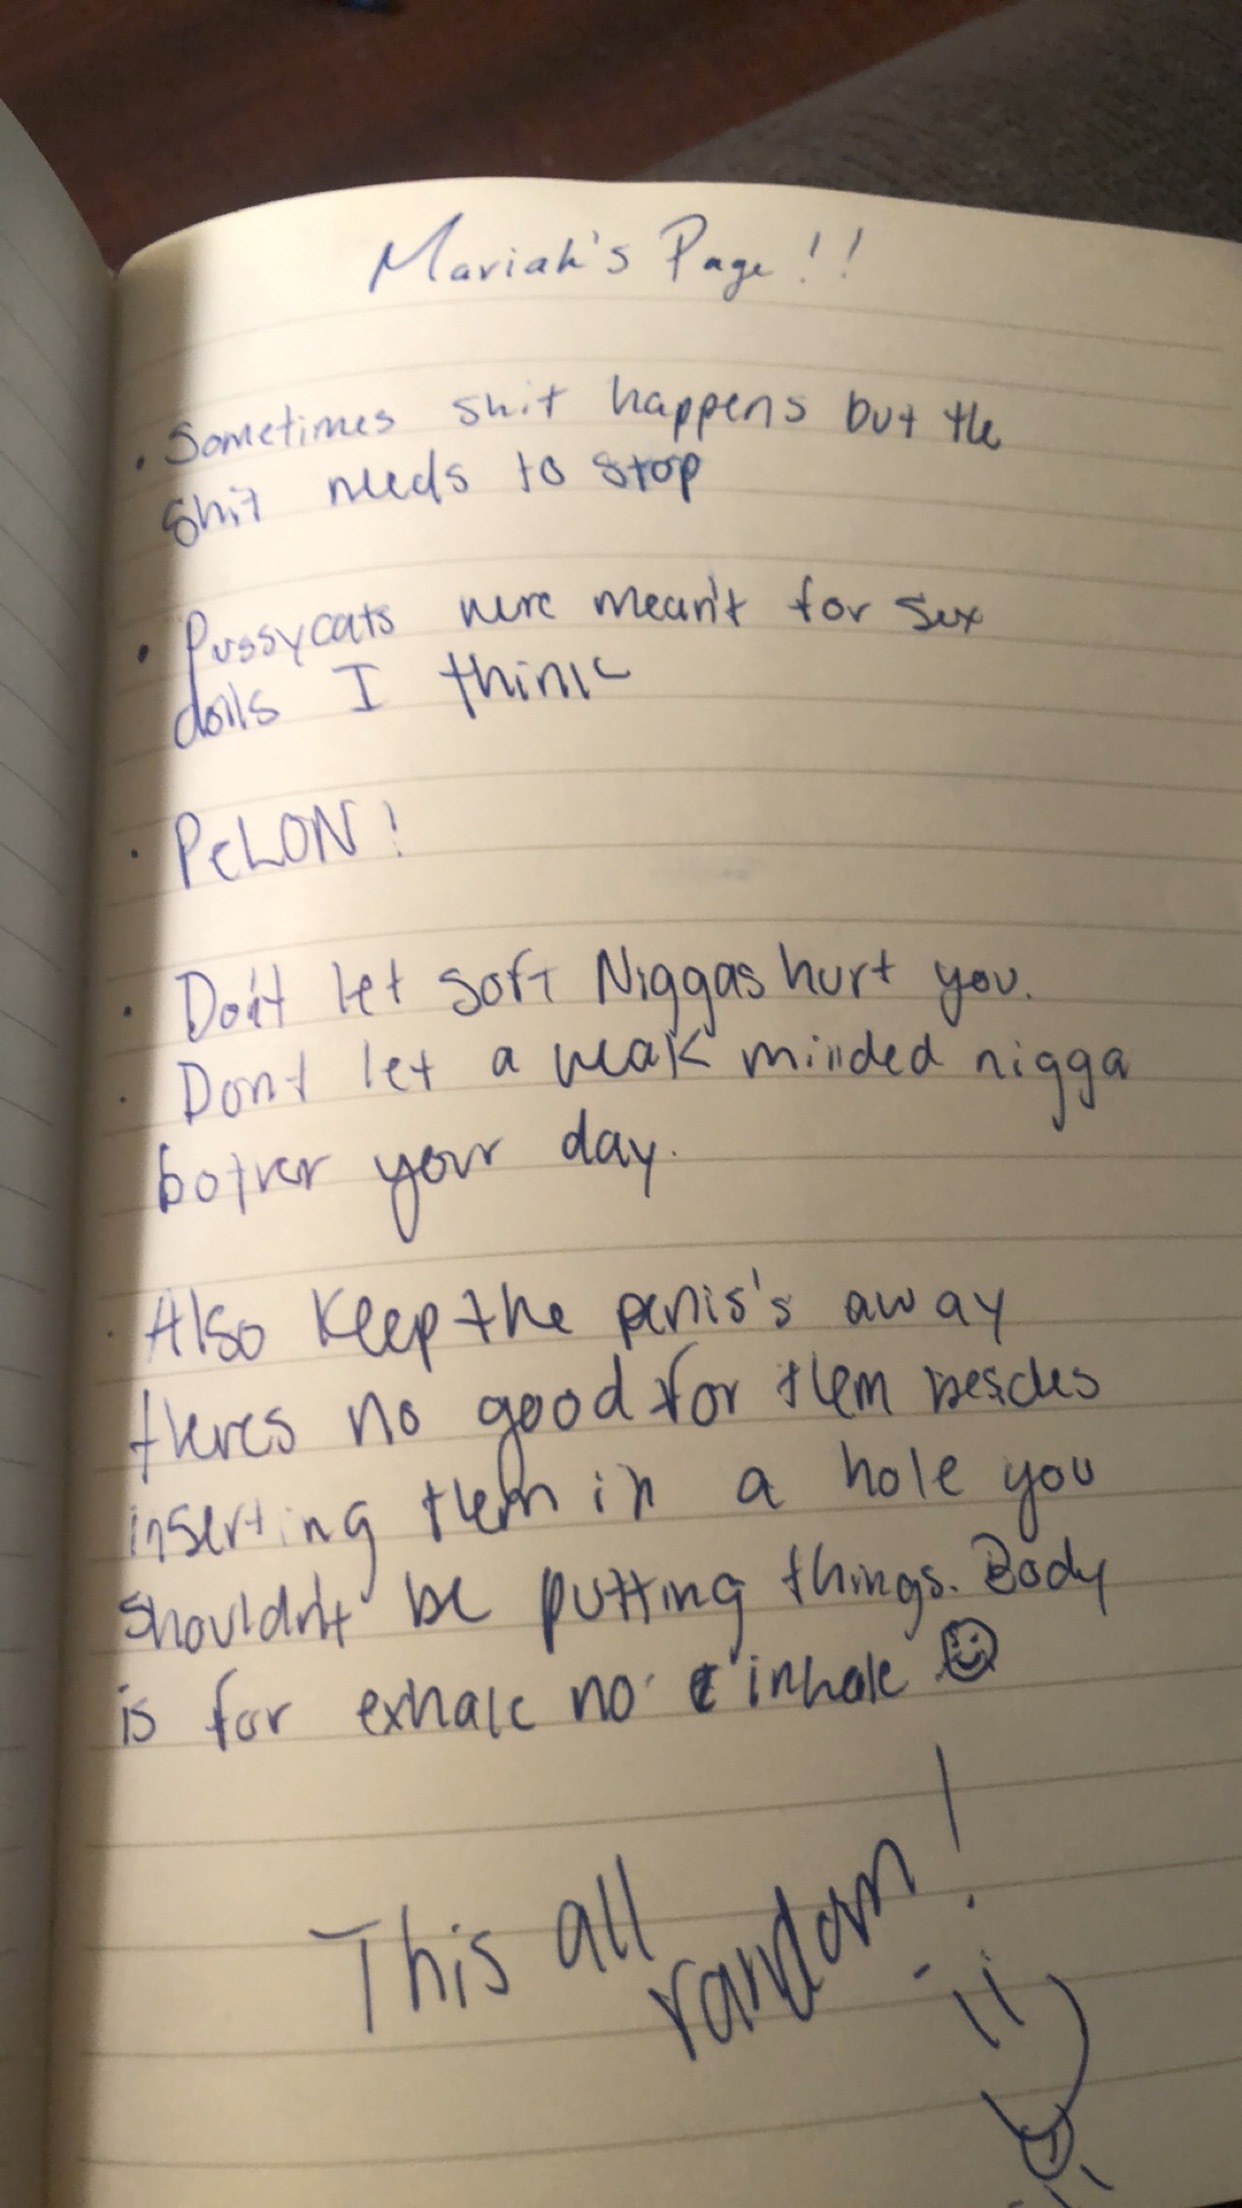 Mariah's Page!!
. Sometimes shit happens but the
shit needs to stop
. Pussycats were mean't for sex
dolls I think
. PeLON!
. Don't let soft Niggas hurt you.
. Dont let a weak minded nigga
bother your day.
. Also Keep the penis's away
theres no good for them besides
inserting them in a hole you
shouldn't be putting things. Body
is for exhale no inhale
This all
random!